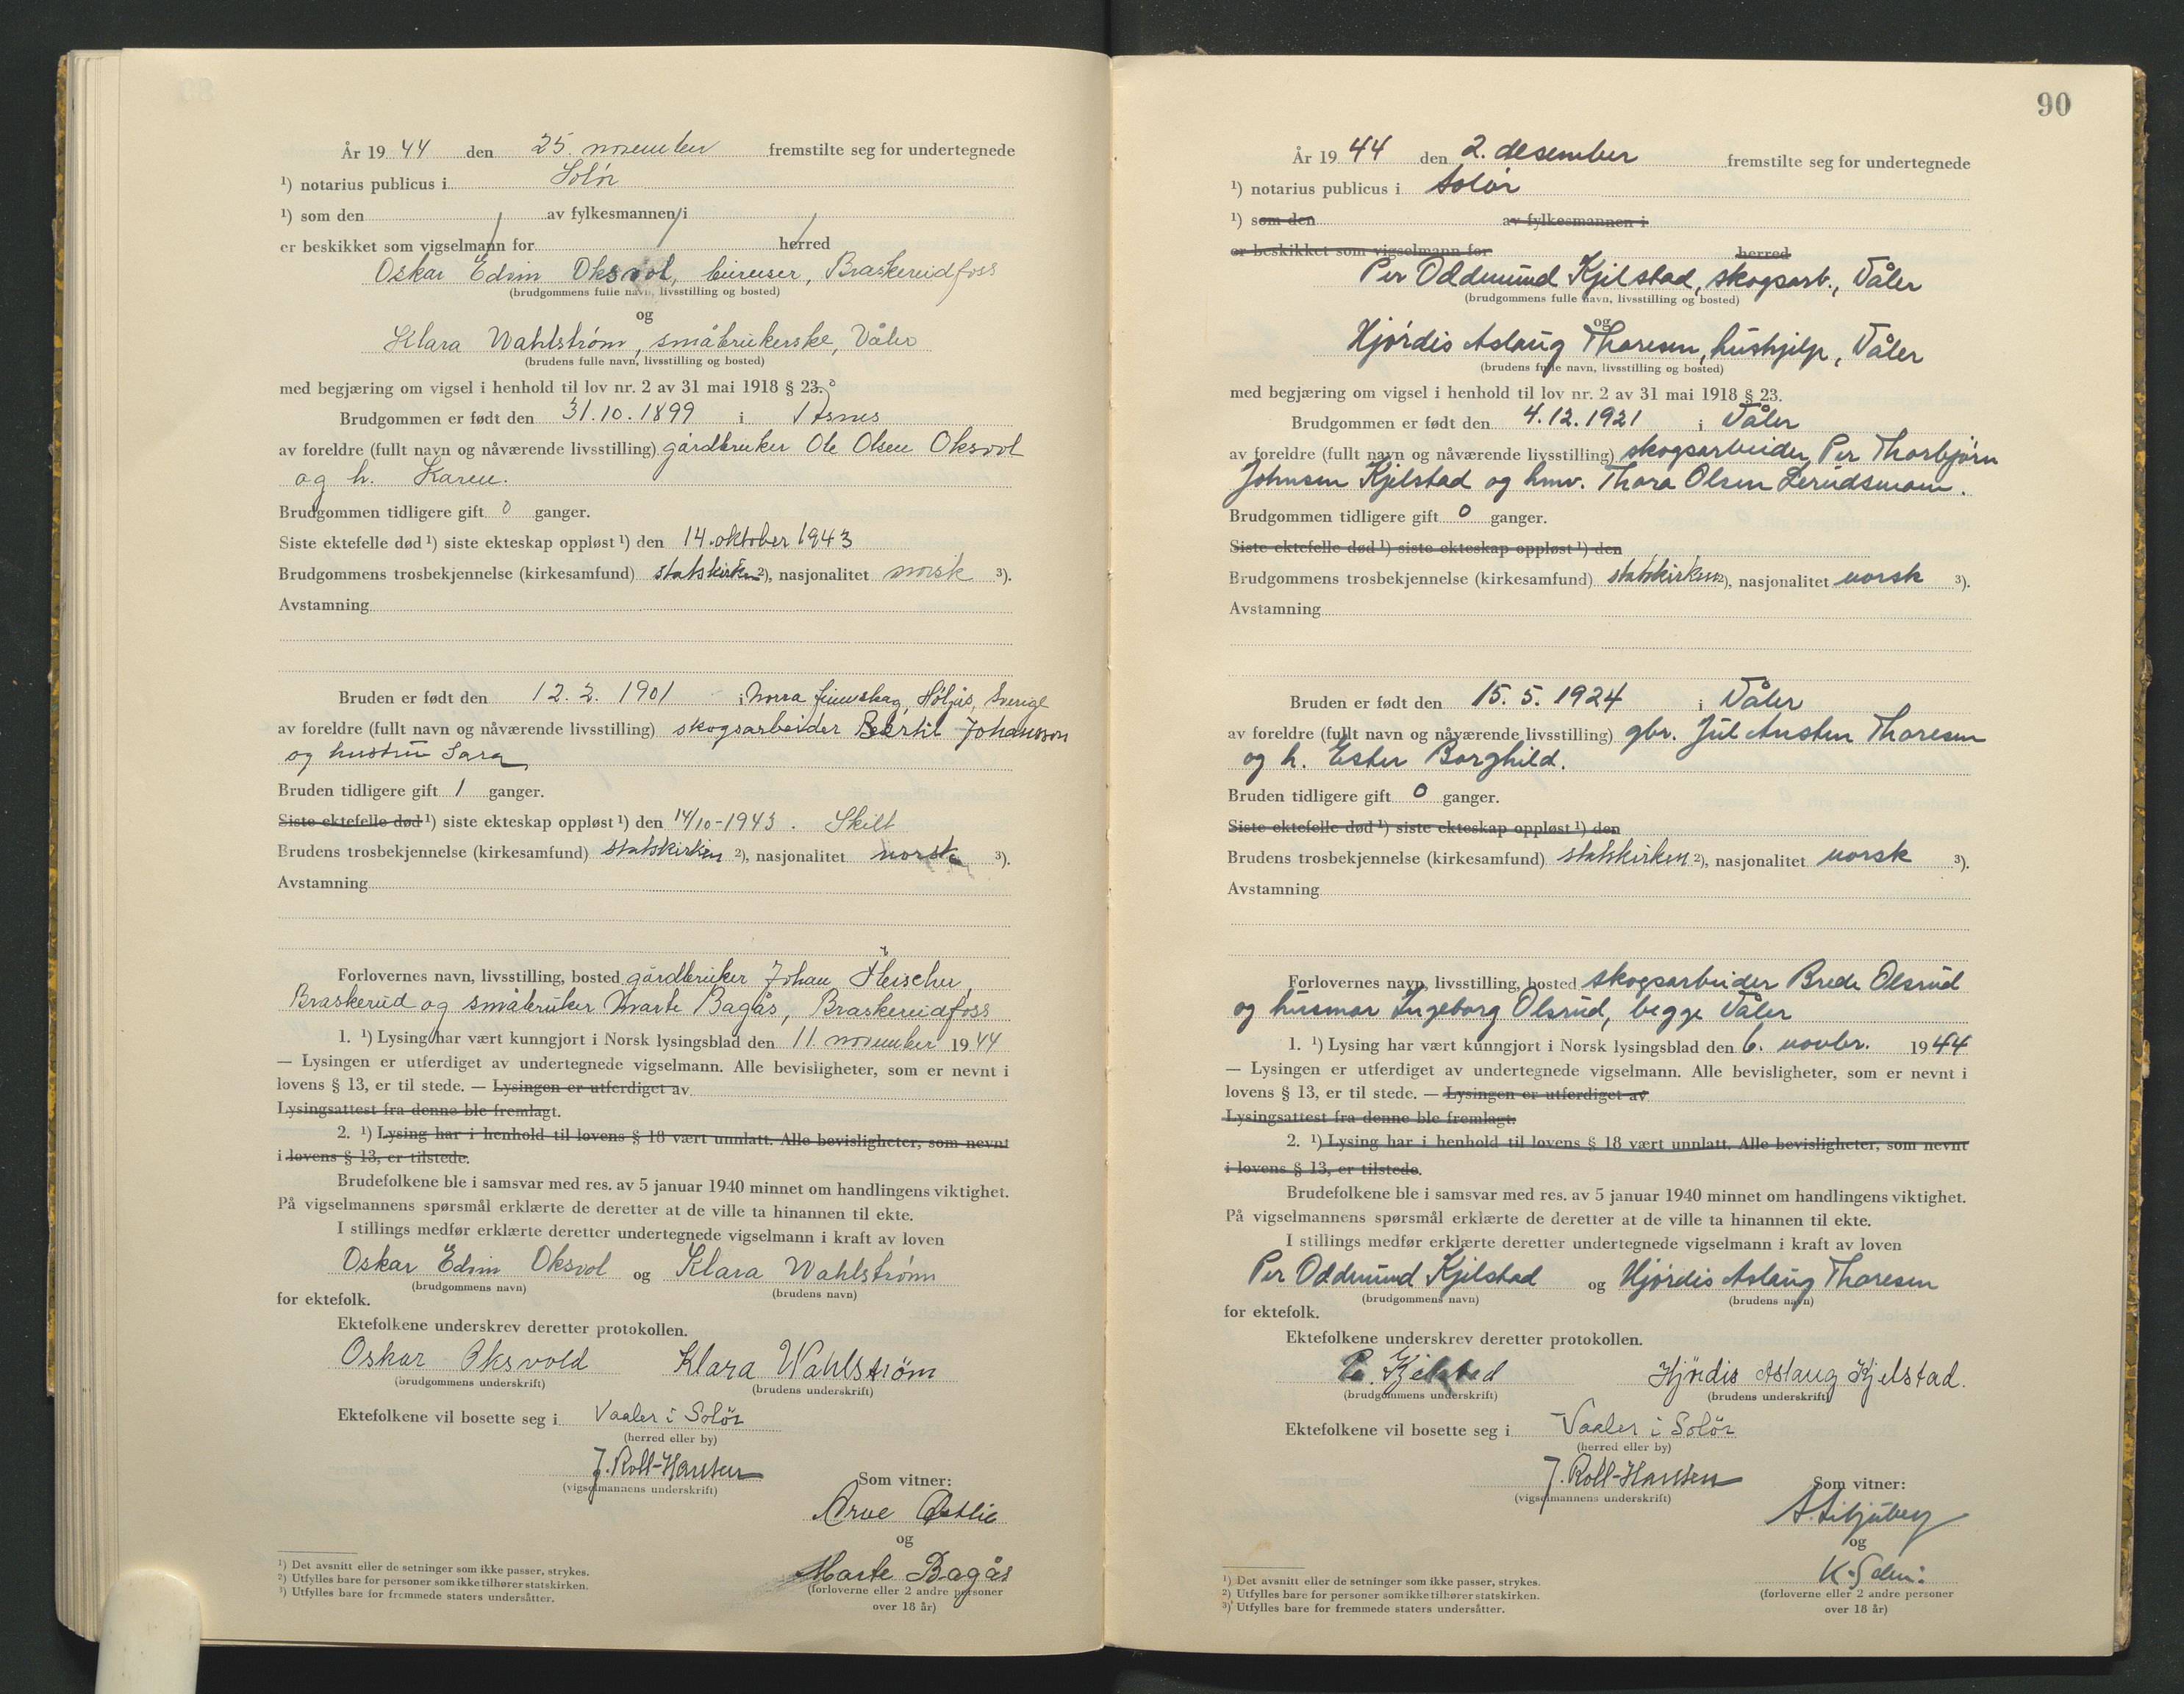 År 19 44 den 25. november fremstilte seg for undertegnede
¹) notarius publicus i Solør
¹) som den av fylkesmannen i
er beskikket som vigselmann for herred
Oskar Edvin Oksvol, bureiser, Braskereidfoss
(brudgommens fulle navn, livsstilling og bosted)
og
Klara Wahlstrøm, småbrukerske, Våler
(brudens fulle navn, livsstilling og bosted)
med begjæring om vigsel i henhold til lov nr. 2 av 31 mai 1918 § 23.
Brudgommen er født den 31.10.1899 i Åsnes
av foreldre (fullt navn og nåværende livsstilling) gårdbruker Ole Olsen Oksvol
og h. Karen.
Brudgommen tidligere gift 0 ganger.
Siste ektefelle død ¹) siste ekteskap oppløst ¹) den 14. oktober 1943
Brudgommens trosbekjennelse (kirkesamfund) statskirken ²), nasjonalitet norsk ³).
Avstamning
Bruden er født den 12.2.1901 i Norra finnskog, Höljes, Sverige
av foreldre (fullt navn og nåværende livsstilling) skogsarbeider Bertil Johansson
og hustru Sara
Bruden tidligere gift 1 ganger.
Siste ektefelle død ¹) siste ekteskap oppløst ¹) den 14/10-1943. Skilt
Brudens trosbekjennelse (kirkesamfund) statskirken ²), nasjonalitet norsk ³).
Avstamning
Forlovernes navn, livsstilling, bosted gårdbruker Johan Fleischer,
Braskerud og småbruker Marte Bagås, Braskereidfoss
1. ¹) Lysing har vært kunngjort i Norsk lysingsblad den 11. november 1944
— Lysingen er utferdiget av undertegnede vigselmann. Alle bevisligheter, som er nevnt i
lovens § 13, er til stede. — Lysingen er utferdiget av
Lysingsattest fra denne ble fremlagt.
2. ¹) Lysing har i henhold til lovens § 18 vært unnlatt. Alle bevisligheter, som nevnt
i lovens § 13, er tilstede.
Brudefolkene ble i samsvar med res. av 5 januar 1940 minnet om handlingens viktighet.
På vigselmannens spørsmål erklærte de deretter at de ville ta hinannen til ekte.
I stillings medfør erklærte deretter undertegnede vigselmann i kraft av loven
Oskar Edvin Oksvol og Klara Wahlstrøm
(brudgommens navn) (brudens navn)
for ektefolk.
Ektefolkene underskrev deretter protokollen.
Oskar Oksvold Klara Wahlstrøm
(brudgommens underskrift) (brudens underskrift)
Ektefolkene vil bosette seg i Vaaler i Solör
(herred eller by)
J. Roll-Hansen
(vigselmannens underskrift)
Som vitner:
Arve Østlie
og
Marte Bagås
(forloverne eller 2 andre personer
over 18 år)
¹) Det avsnitt eller de setninger som ikke passer, strykes.
²) Utfylles bare for personer som ikke tilhører statskirken.
³) Utfylles bare for fremmede staters undersåtter.
90
År 19 44 den 2. desember fremstilte seg for undertegnede
¹) notarius publicus i Solør
¹) som den av fylkesmannen i
er beskikket som vigselmann for herred
Per Oddmund Kjelstad, skogsarb., Våler
(brudgommens fulle navn, livsstilling og bosted)
og
Hjørdis Aslaug Thoresen, hushjelp, Våler
(brudens fulle navn, livsstilling og bosted)
med begjæring om vigsel i henhold til lov nr. 2 av 31 mai 1918 § 23.
Brudgommen er født den 4.12.1921 i Våler
av foreldre (fullt navn og nåværende livsstilling) skogsarbeider Per Thorbjørn
Johnsen Kjelstad og hmv. Thora Olsen Lerudsmoen.
Brudgommen tidligere gift 0 ganger.
Siste ektefelle død ¹) siste ekteskap oppløst ¹) den
Brudgommens trosbekjennelse (kirkesamfund) statskirken ²), nasjonalitet norsk ³).
Avstamning
Bruden er født den 15.5.1924 i Våler
av foreldre (fullt navn og nåværende livsstilling) gbr. Jul Austen Thoresen
og h. Ester Borghild.
Bruden tidligere gift 0 ganger.
Siste ektefelle død ¹) siste ekteskap oppløst ¹) den
Brudens trosbekjennelse (kirkesamfund) statskirken ²), nasjonalitet norsk ³).
Avstamning
Forlovernes navn, livsstilling, bosted skogsarbeider Brede Olsrud
og husmor Ingeborg Olsrud, begge Våler
1. ¹) Lysing har vært kunngjort i Norsk lysingsblad den 6. novbr. 1944
— Lysingen er utferdiget av undertegnede vigselmann. Alle bevisligheter, som er nevnt i
lovens § 13, er til stede. — Lysingen er utferdiget av
Lysingsattest fra denne ble fremlagt.
2. ¹) Lysing har i henhold til lovens § 18 vært unnlatt. Alle bevisligheter, som nevnt
i lovens § 13, er tilstede.
Brudefolkene ble i samsvar med res. av 5 januar 1940 minnet om handlingens viktighet.
På vigselmannens spørsmål erklærte de deretter at de ville ta hinannen til ekte.
I stillings medfør erklærte deretter undertegnede vigselmann i kraft av loven
Per Oddmund Kjelstad og Hjørdis Aslaug Thoresen
(brudgommens navn) (brudens navn)
for ektefolk.
Ektefolkene underskrev deretter protokollen.
Per Kjelstad Hjørdis Aslaug Kjelstad.
(brudgommens underskrift) (brudens underskrift)
Ektefolkene vil bosette seg i Vaaler i Solör
(herred eller by)
J. Roll-Hansen
(vigselmannens underskrift)
Som vitner:
og
(forloverne eller 2 andre personer
over 18 år)
¹) Det avsnitt eller de setninger som ikke passer, strykes.
²) Utfylles bare for personer som ikke tilhører statskirken.
³) Utfylles bare for fremmede staters undersåtter.